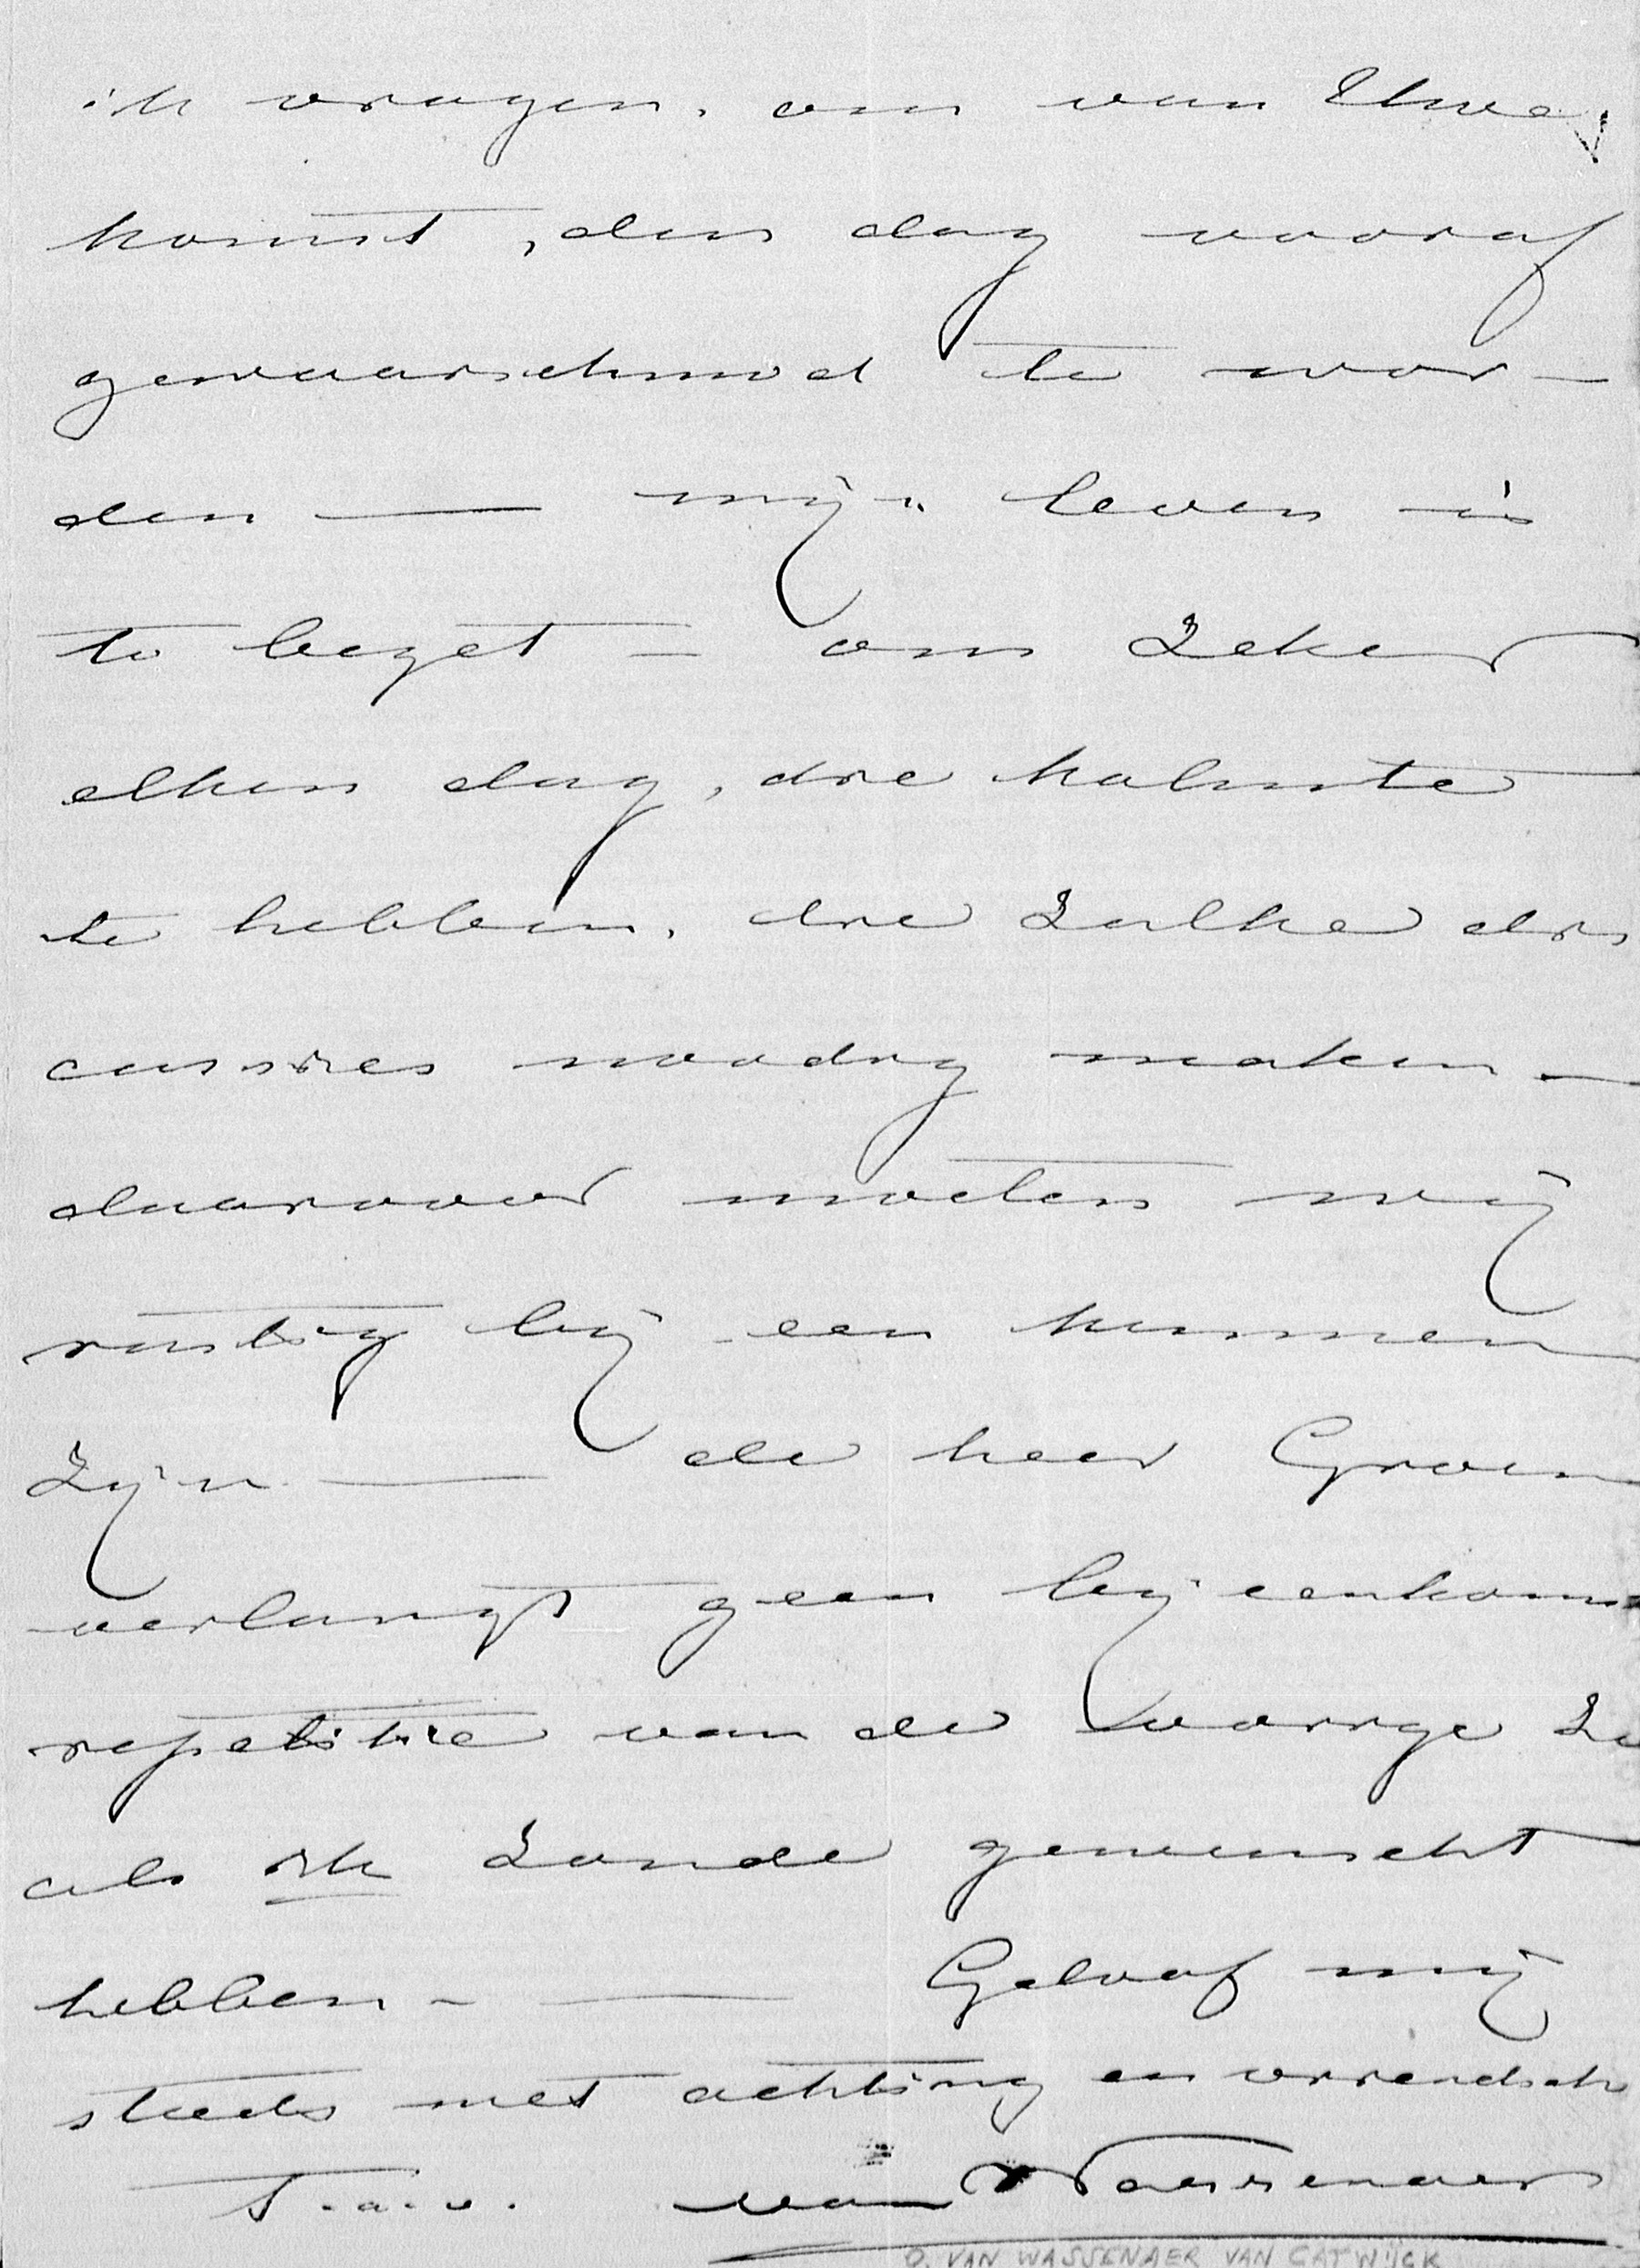 ik vragen, om van Uwe
komst, den dag vooraf
gewaarschuwd te wor-
den — mijn leven is
te bezet — om zeker
elken dag, die kalmte
te hebben, die zulke dis
cussies noodig maken —
daarvoor moeten wij
rustig bij een kunnen
zijn — de heer Groen
verlangt geen bijeenkoms
repetitie van de vorige zo
als ik zoude gewenscht
hebben — Geloof mij
steeds met achting en vriendsch
T.a.v. van Wassenaer
O. VAN WASSENAER VAN CATWIJCK